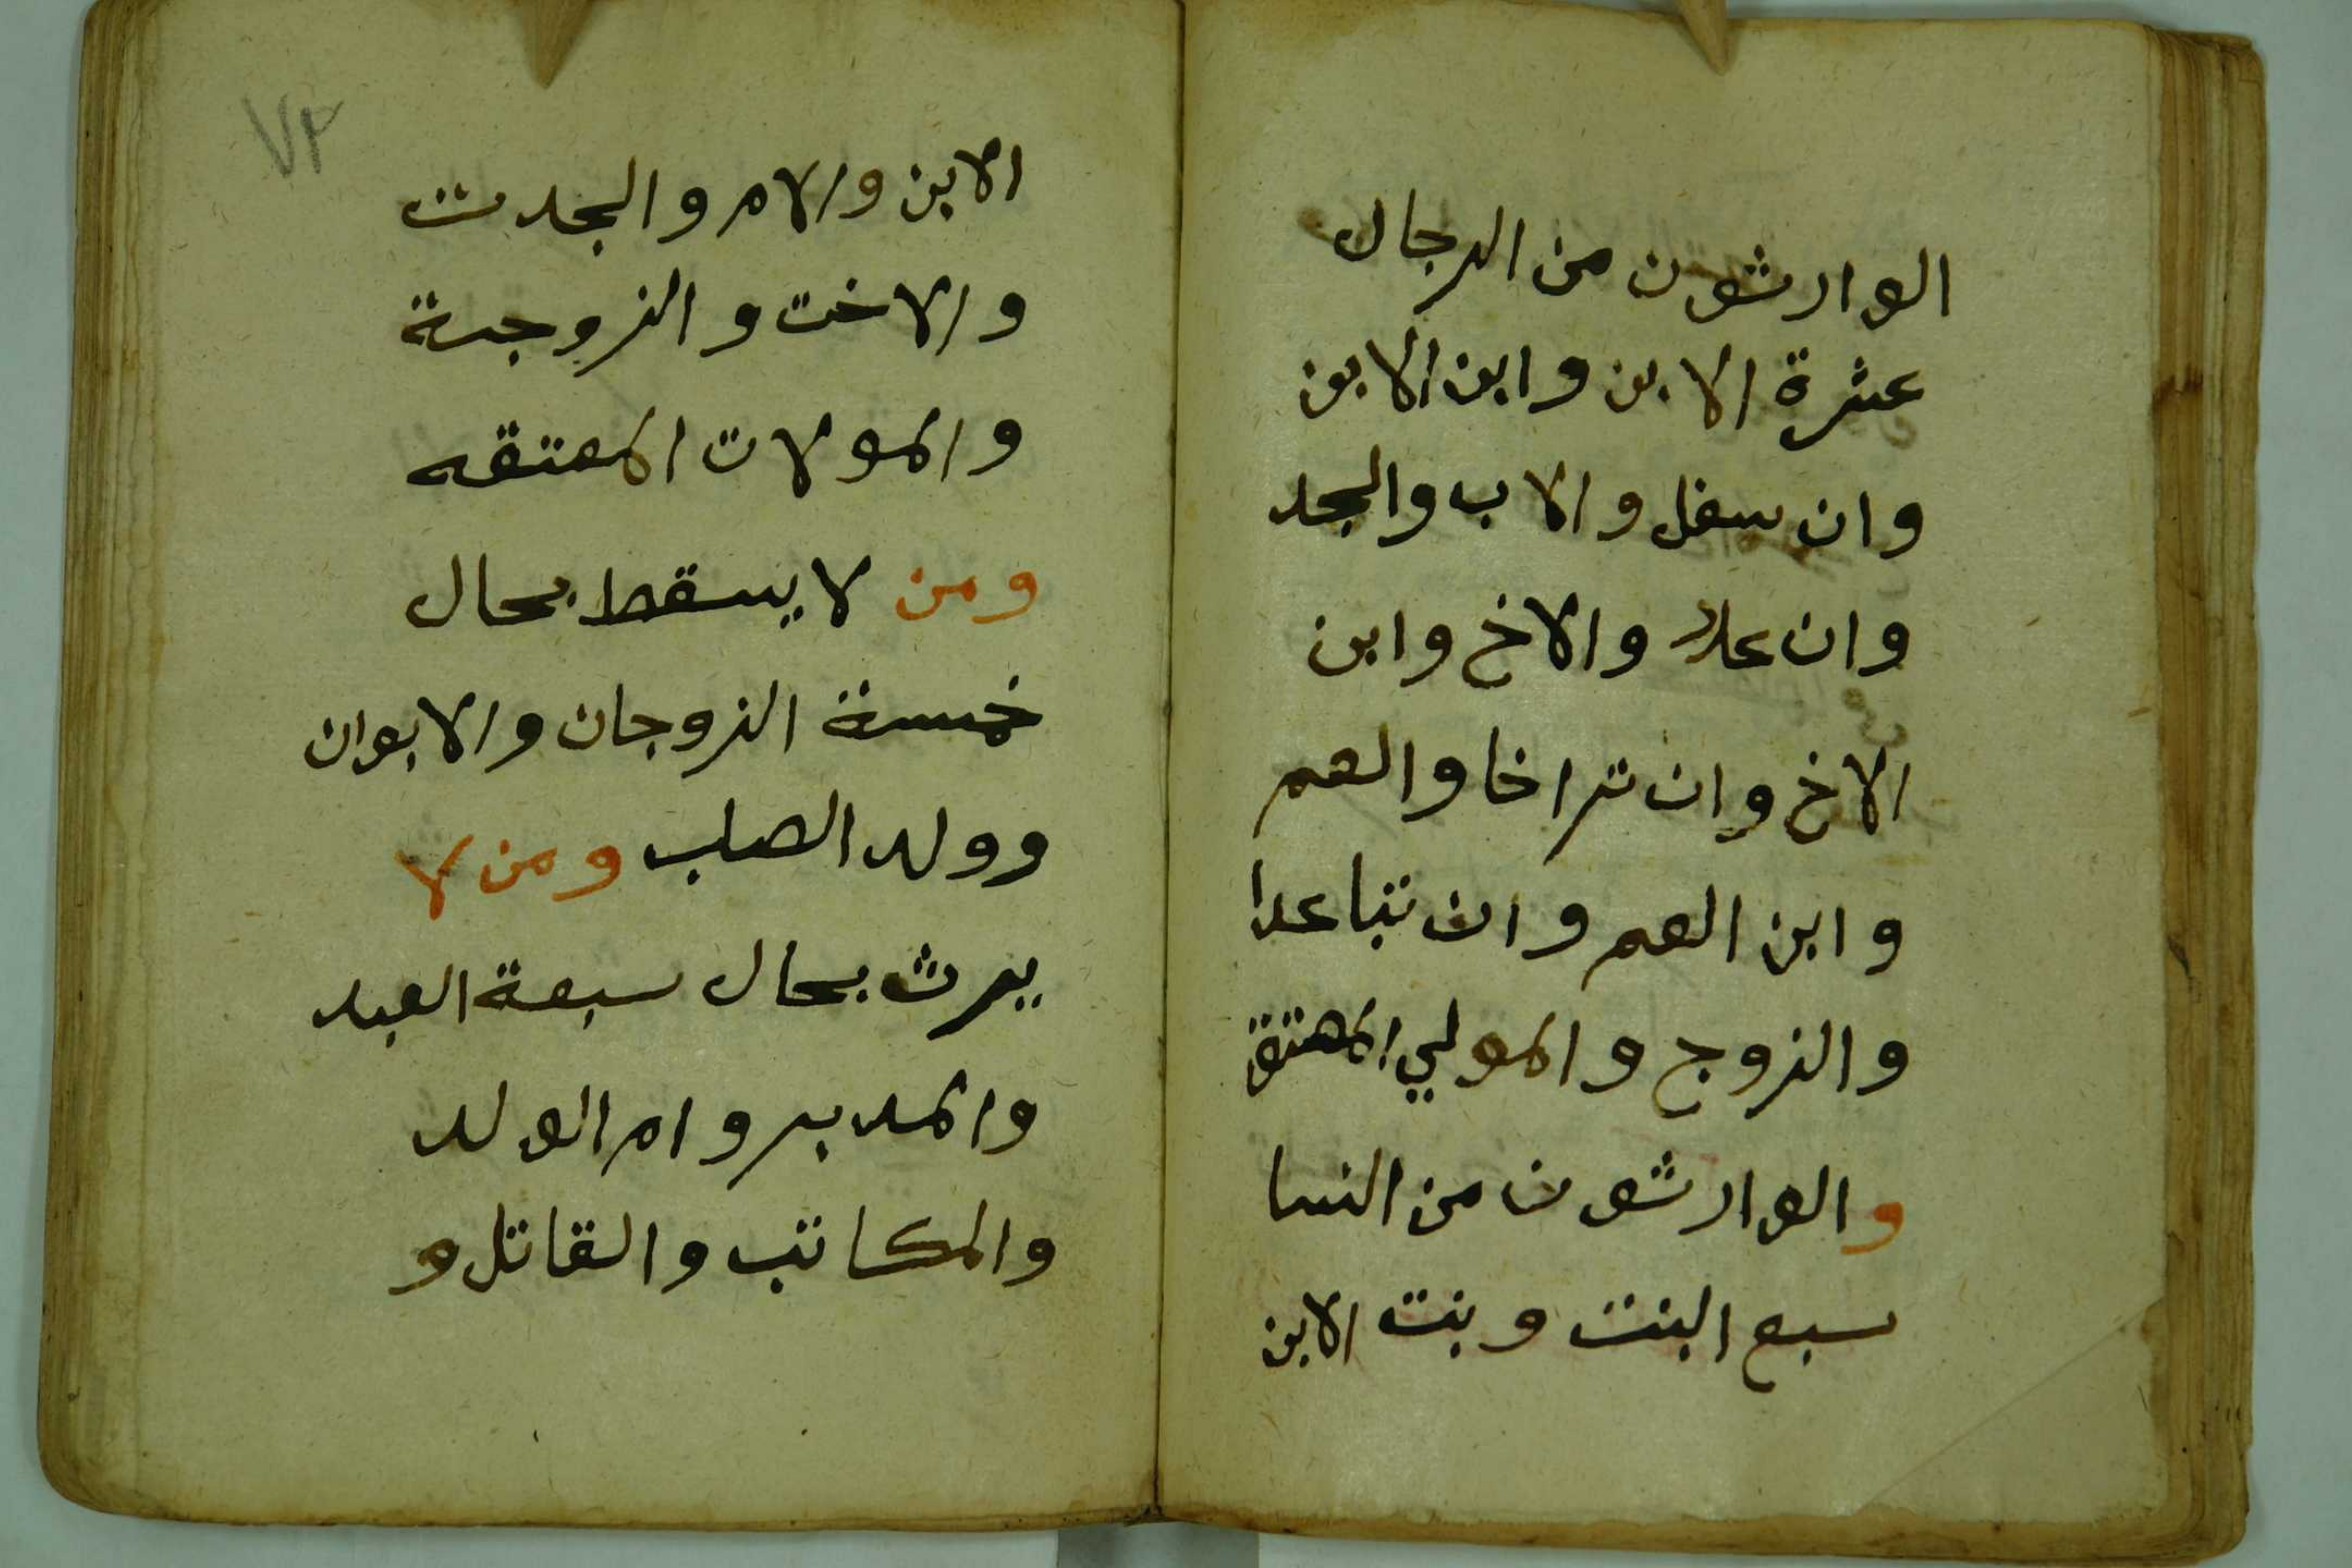 الوارثون من الرجال
عشرة الابن وابن الابن
وان سفل والاب والجد
وان علا والاخ وابن
الاخ وان تراخا والعم
وابن العم وان تباعدا
والزوج والمولي المعتق
والوارثون من النسا
سبع البنت وبنت الابن
٧٢
الابن والام والجدت
والاخت والزوجة
والمولات المعتقه
ومن لا يسقط بحال
خمسة الزوجان والابوان
وولد الصلب ومن لا
يرث بحال سبعة العبد
والمدبر وام الولد
والمكاتب والقاتل و